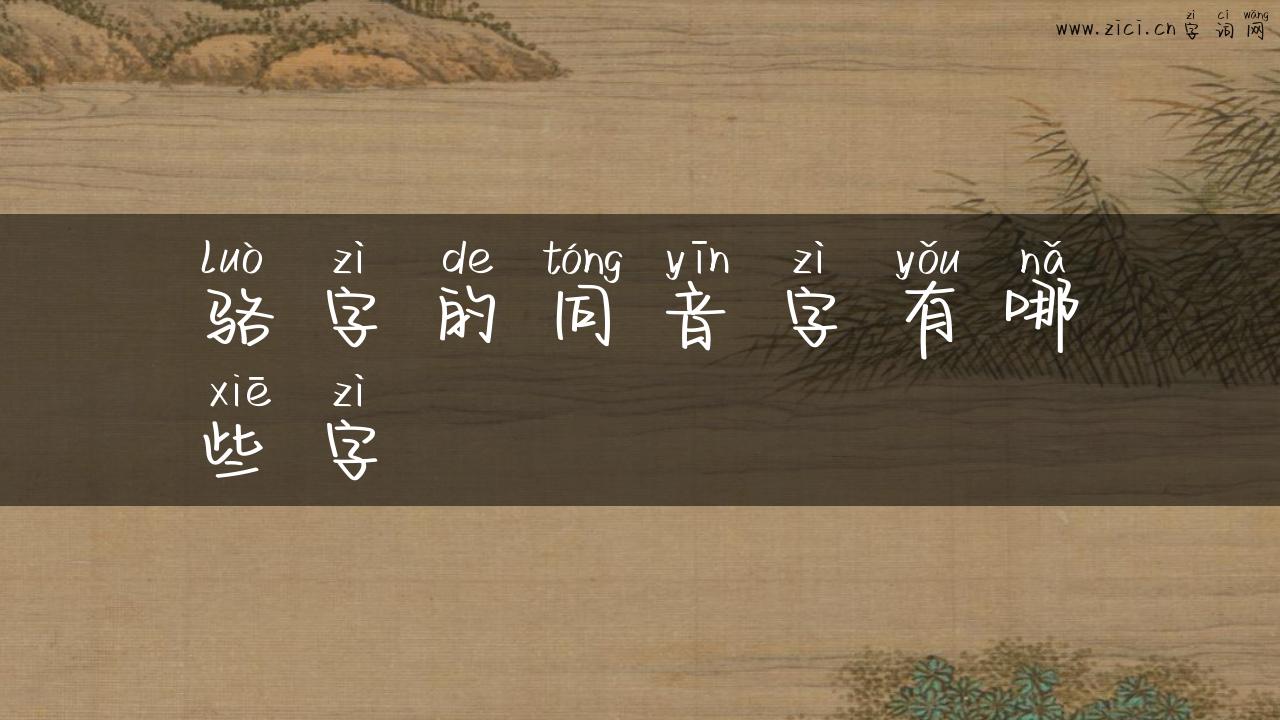 zì cí wǎng
www.zici.cn 字词网
luò zì de tóng yīn zì yǒu nǎ
骆字的同音字有哪
xiē zì
些字